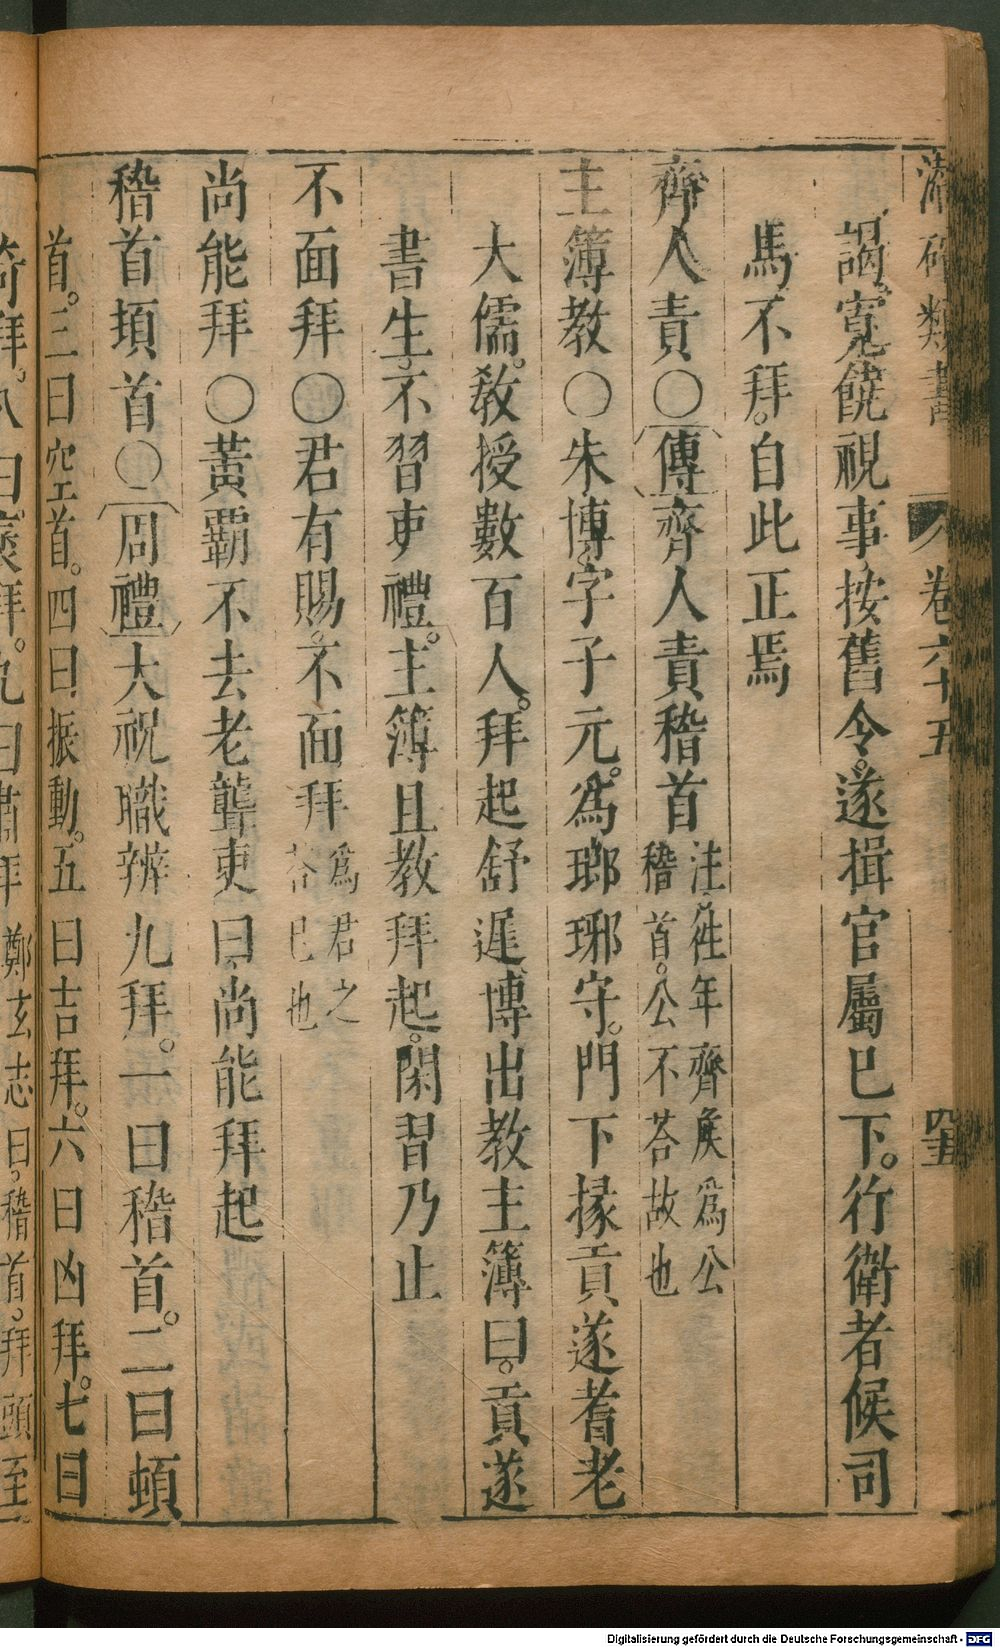 類書 卷六十五 四十五
謁。寬饒視事按舊令。遂揖官屬巳下。行衛者候司
馬不拜。自此正焉
齊人責○傳齊人責稽首注徃年齊矦爲公稽首。公不荅故也
主簿敎○朱博。字子元。爲瑯琊守。門下掾貢遂耆老
大儒。敎授數百人。拜起舒遲。博出敎主簿曰。貢遂
書生。不習吏禮。主簿且敎拜起。閑習乃止
不面拜○君有賜。不面拜爲君之荅巳也
尚能拜○黃覇不去老聾吏曰。尚能拜起
稽首頊首○周禮大祝職辨九拜。一曰稽首。二曰頓
首。三曰空首。四曰振動。五曰吉拜。六曰凶拜。七曰
竒拜。八曰襃拜。九曰肅拜鄭玄志曰。稽首。拜頭至
Digitalisierung gefördert durch die Deutsche Forschungsgemeinschaft - DFG